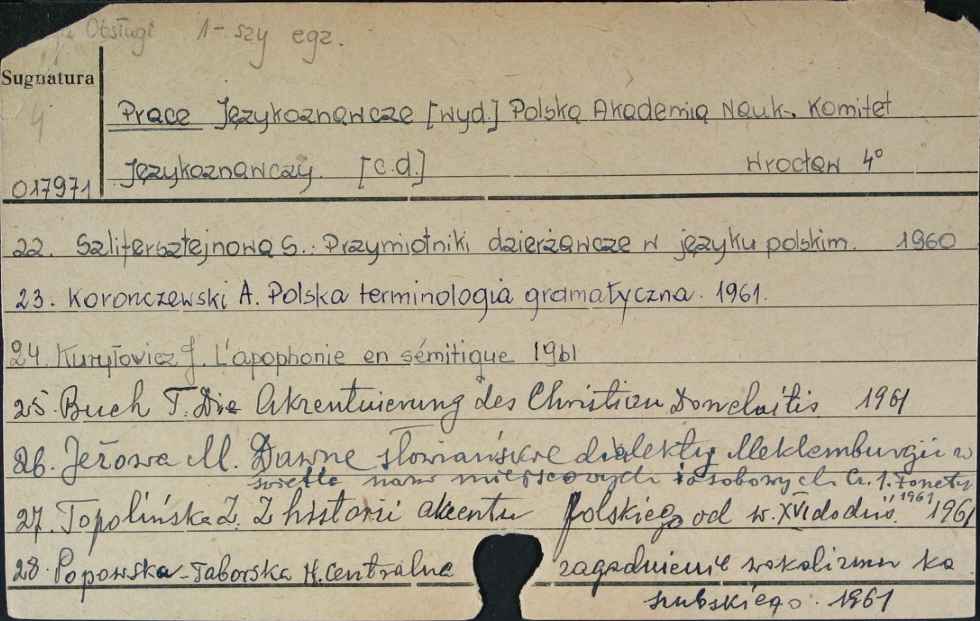 Obsługi 1-szy egz.
Sygnatura
4
Prace Językoznawcze [wyd.] Polska Akademia Nauk. Komitet
Językoznawczy. [c.d.] Wrocław 4°
017971
22. Szlifersztejnowa S.: Przymiotniki dzierżawcze w języku polskim. 1960
23. Koronczewski A. Polska terminologia gramatyczna. 1961.
24. Kuryłowicz J. L'apophonie en sémitique 1961
25. Buch T. Die Akzentuierung des Christian Donelaitis 1961
26. Jeżowa M. Dawne słowiańskie dialekty Meklemburgii w
świetle nazw miejscowych i osobowych Cz. 1. Fonety
1961
27. Topolińska Z. Z historii akcentu polskiego od w. XVI do dziś. 1961
28. Popowska-Taborska H. Centralne zagadnienie wokalizmu ka
szubskiego. 1961